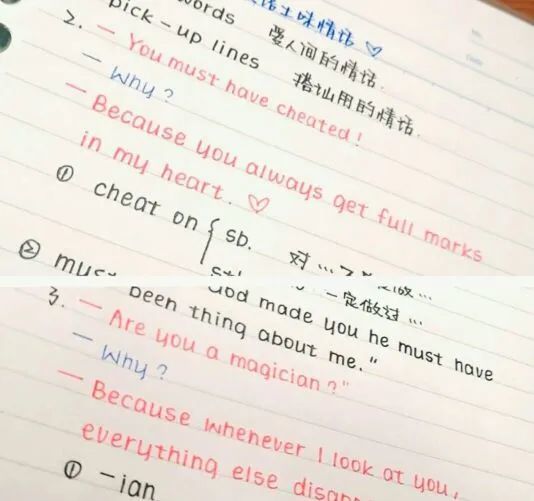 土味情话 ♡
words 爱人间的情话.
pick-up lines 搭讪用的情话.
2. — You must have cheated!
— Why?
— Because you always get full marks
in my heart. ♡
① cheat on { sb. 对…
② must 一定做过…
God made you he must have
been thing about me."
3. — Are you a magician?"
— Why?
— Because whenever I look at you,
everything else
① -ian